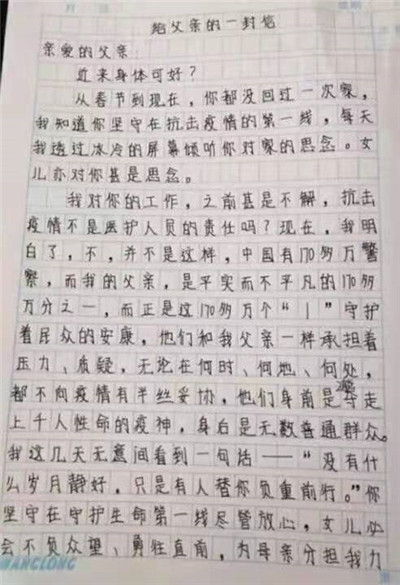 给父亲的一封信
亲爱的父亲:
近来身体可好?
从春节到现在,你都没回过一次家。
我知道你坚守在抗击疫情的第一线,每天
我透过冰冷的屏幕倾听你对家的思念。女
儿亦对你甚是思念。
我对你的工作,之前甚是不解,抗击
疫情不是医护人员的责任吗?现在,我明
白了,不,并不是这样,中国有170多万警
察,而我的父亲,是平实而不平凡的170多
万分之一,而正是这170多万个“1”守护
着民众的安康,他们和我父亲一样承担着
压力、质疑,无论在何时、何地、何处,
都不向疫情有半丝妥协,他们身前是夺走
上千人性命的疫神,身后是无数普通群众。
我这几天无意间看到一句话——“没有什
么岁月静好,只是有人替你负重前行。”你
坚守在守护生命第一线尽管放心,女儿必
会不负众望、勇往直前,为母亲分担我力
WANGLONG